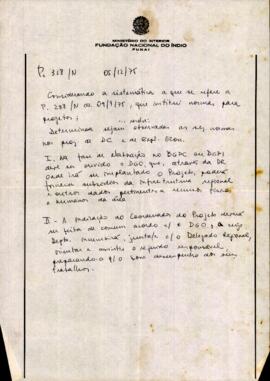 MINISTÉRIO DO INTERIOR
FUNDAÇÃO NACIONAL DO ÍNDIO
FUNAI
P. 328/N 05/12/75
Considerando a sistemática a que se refere a
P. 288/N de 09/9/75, que institui normas para
projetos;
Determina sejam observadas as seg. normas
nos proj. de DC e de Expl. Econ.
I. Na fase de elaboração no DGPC ou DGPI
deve ser ouvido o DGO que, através da DR
onde irá ser implantado o Projeto, poderá
fornecer subsídios da infraestrutura regional
e outros dados pertinentes a recursos
e humanos da área
II - A indicação do Coordenador do Projeto deverá
ser feita de comum acordo c/ o DGO, a cujo
Depto. incumbirá, c/ o Delegado Regional,
orientar e assistir o referido responsável,
preparando-o p/ o bom desempenho dos seus
trabalhos.